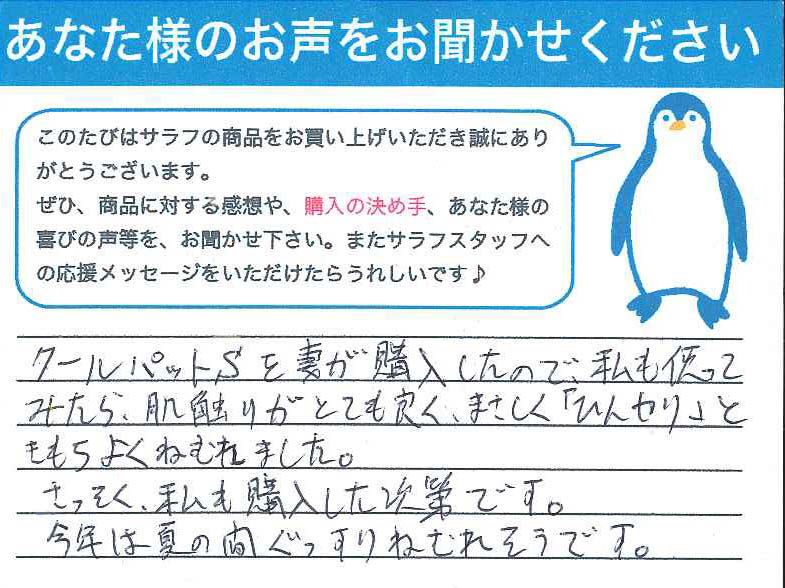 あなた様のお声をお聞かせください
このたびはサラフの商品をお買い上げいただき誠にあり
がとうございます。
ぜひ、商品に対する感想や、購入の決め手、あなた様の
喜びの声等を、お聞かせ下さい。またサラフスタッフへ
の応援メッセージをいただけたらうれしいです♪
クールパットSを妻が購入したので、私も使って
みたら、肌触りがとても良く、まさしく「ひんヤリ」と
きもちよくねむれました。
さっそく、私も購入した次第です。
今年は夏の間ぐっすりねむれそうです。